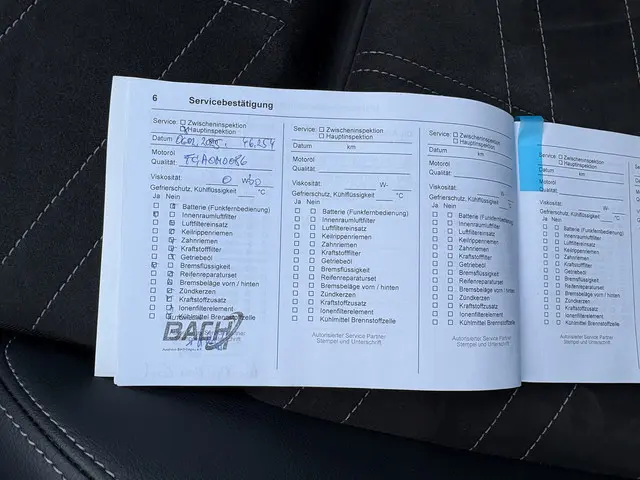 6 Servicebestätigung
Service: Zwischeninspektion
Hauptinspektion
Datum 46.254
Motoröl
Qualität:
Viskosität: 0 W-
Gefrierschutz, Kühlflüssigkeit °C
Ja Nein
Batterie (Funkfernbedienung)
Innenraumluftfilter
Luftfiltereinsatz
Keilrippenriemen
Zahnriemen
Kraftstofffilter
Getriebeöl
Bremsflüssigkeit
Reifenreparaturset
Bremsbeläge vorn / hinten
Zündkerzen
Kraftstoffzusatz
Ionenfilterelement
Kühlmittel Brennstoffzelle
BACH
Service: Zwischeninspektion
Hauptinspektion
Datum km
Motoröl
Qualität:
Viskosität: W-
Gefrierschutz, Kühlflüssigkeit °C
Ja Nein
Batterie (Funkfernbedienung)
Innenraumluftfilter
Luftfiltereinsatz
Keilrippenriemen
Zahnriemen
Kraftstofffilter
Getriebeöl
Bremsflüssigkeit
Reifenreparaturset
Bremsbeläge vorn / hinten
Zündkerzen
Kraftstoffzusatz
Ionenfilterelement
Kühlmittel Brennstoffzelle
Autorisierter Service Partner
Stempel und Unterschrift
Service: Zwischeninspektion
Hauptinspektion
Datum km
Motoröl
Qualität:
Viskosität: W-
Gefrierschutz, Kühlflüssigkeit °C
Ja Nein
Batterie (Funkfernbedienung)
Innenraumluftfilter
Luftfiltereinsatz
Keilrippenriemen
Zahnriemen
Kraftstofffilter
Getriebeöl
Bremsflüssigkeit
Reifenreparaturset
Bremsbeläge vorn / hinten
Zündkerzen
Kraftstoffzusatz
Ionenfilterelement
Kühlmittel Brennstoffzelle
Autorisierter Service Partner
Stempel und Unterschrift
Service: Zwischeninspektion
Hauptinspektion
Datum km
Motoröl
Qualität:
Viskosität: W-
Gefrierschutz, Kühlflüssigkeit °C
Ja Nein
Batterie (Funkfernbedienung)
Innenraumluftfilter
Luftfiltereinsatz
Keilrippenriemen
Zahnriemen
Kraftstofffilter
Getriebeöl
Bremsflüssigkeit
Reifenreparaturset
Bremsbeläge vorn / hinten
Zündkerzen
Kraftstoffzusatz
Ionenfilterelement
Kühlmittel Brennstoffzelle
Autorisierter Service Partner
Stempel und Unterschrift